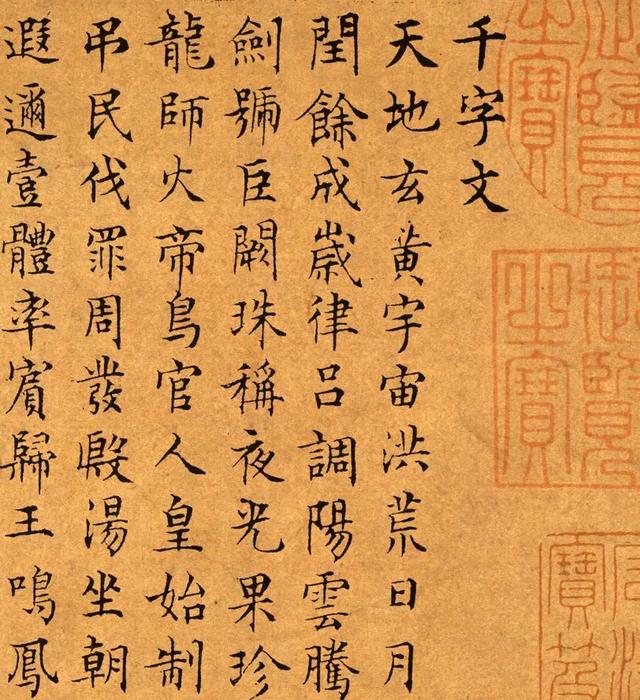 御覽
之寶
寶笈
千字文
天地玄黄宇宙洪荒日月
閏餘成嵗律吕調陽雲騰
劍號巨闕珠稱夜光果珍
龍師火帝鳥官人皇始制
弔民伐罪周發殷湯坐朝
遐邇壹體率賓歸王鳴鳳